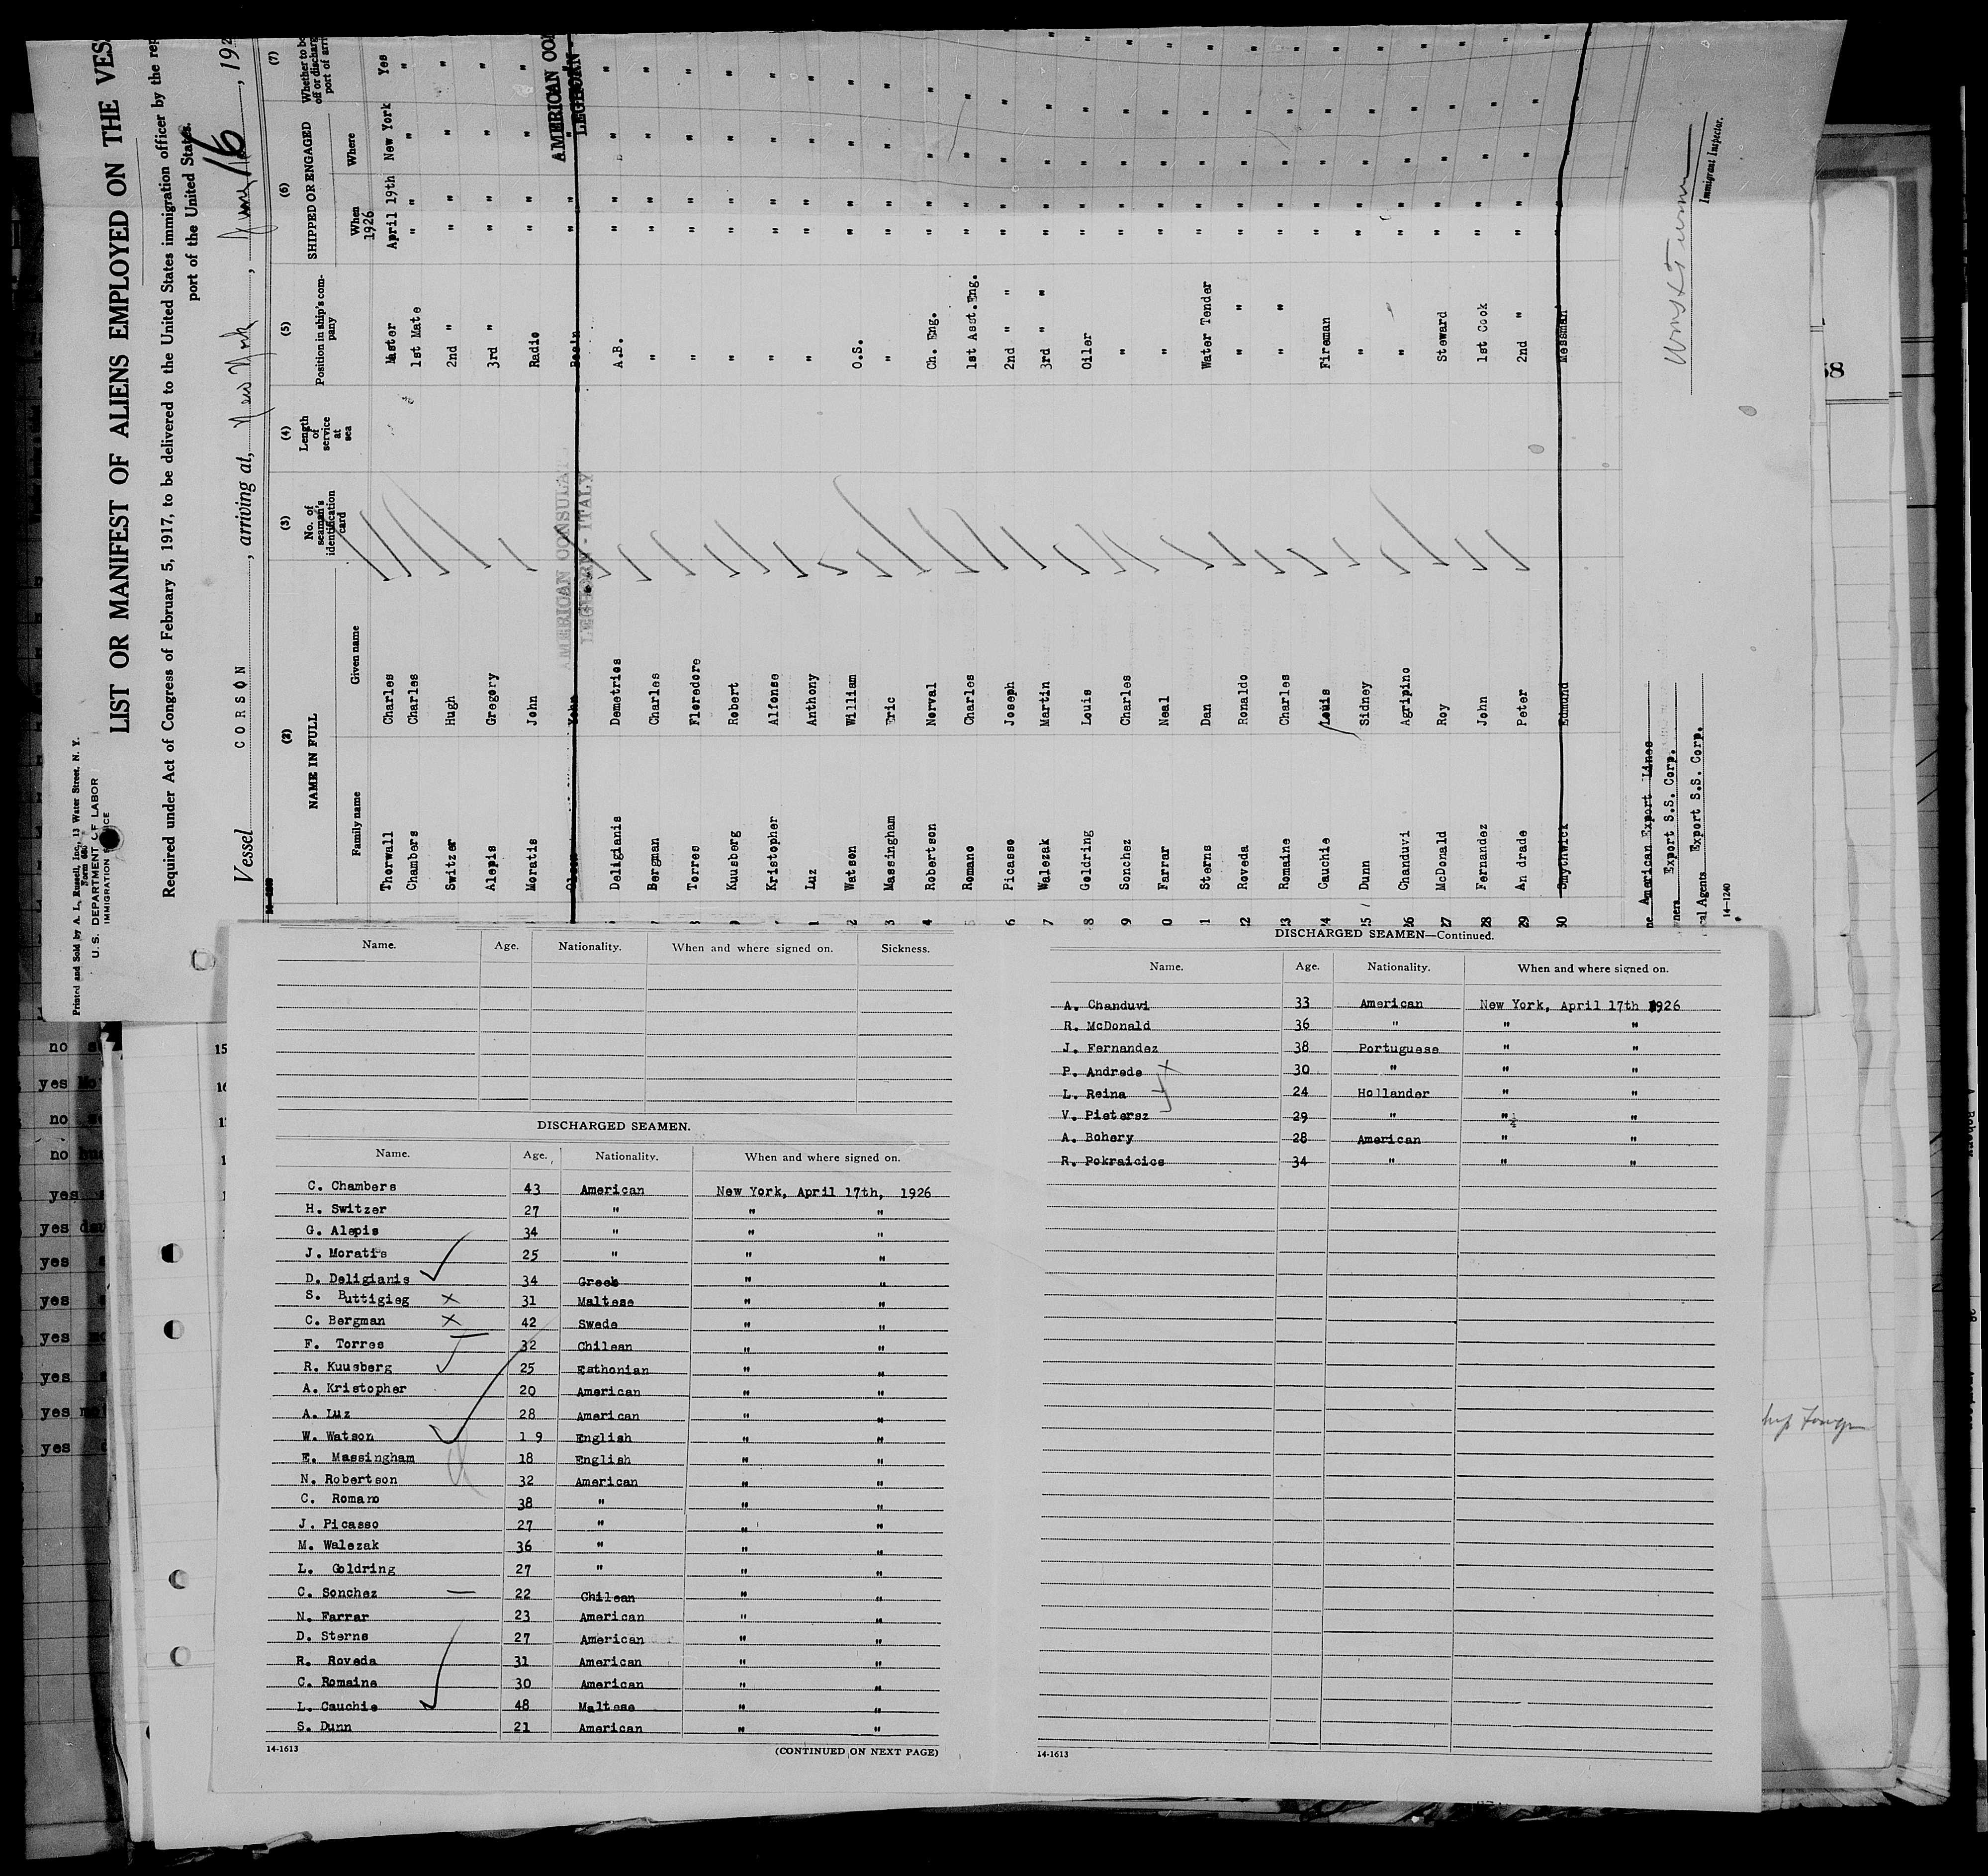 Printed and Sold by A. L. Russell, Inc., 13 Water Street, N. Y.
U. S. DEPARTMENT OF LABOR
IMMIGRATION
LIST OR MANIFEST OF ALIENS EMPLOYED ON THE VES
Required under Act of Congress of February 5, 1917, to be delivered to the United States immigration officer by the rep
port of the United States.
Vessel CORSON, arriving at, New York, June 16, 192
(2) (3) (4) (5) (6) (7)
NAME IN FULL
Family name Given name
No. of seaman's identification card
Length of service at sea
Position in ship's company
SHIPPED OR ENGAGED
When 1926 Where
Whether to be
off or discharg
port of arri
Thorwall Charles Master April 19th New York Yes
Chambers Charles 1st Mate " " "
Switzer Hugh 2nd " " " "
Alepis Gregory 3rd " " " "
Moratis John Radio " " "
Olsen John Bosin " " "
Deligianis Demetrios A.B. " " "
7 Bergman Charles " " " "
8 Torres Floredore " " " "
9 Kuusberg Robert " " " "
Kristopher Alfonse " " " "
1 Luz Anthony " " " "
2 Watson William O.S. " " "
3 Massingham Eric " " " "
4 Robertson Norval Ch. Eng. " " "
5 Romano Charles 1st Asst.Eng. " " "
6 Picasso Joseph 2nd " " " " "
7 Walezak Martin 3rd " " " " "
8 Goldring Louis Oiler " " "
9 Sonchez Charles " " " "
0 Farrar Neal " " " "
1 Sterns Dan Water Tender " " "
22 Roveda Ronaldo " " " " "
23 Romaine Charles " " " " "
24 Cauchie Louis Fireman " " "
25 Dunn Sidney " " " "
26 Chanduvi Agripino " " " "
27 McDonald Roy Steward " " "
28 Fernandez John 1st Cook " " "
29 Andrade Peter 2nd " " " "
30 Smythwick Edmund Messman "
AMERICAN CONSULAT
LEGHORN - ITALY
AMERICAN CO
LEGHORN -
ne American Export Lines
ners Export S.S. Corp.
al Agents Export S.S. Corp.
14-1240
Immigrant Inspector.
58
Name. Age. Nationality. When and where signed on. Sickness.
DISCHARGED SEAMEN.
Name. Age. Nationality. When and where signed on.
C. Chambers 43 American New York, April 17th, 1926
H. Switzer 27 " " "
G. Alepis 34 " " "
J. Moratis 25 " " "
D. Deligianis 34 Greek " "
S. Buttigieg 31 Maltese " "
C. Bergman 42 Swede " "
F. Torres 32 Chilean " "
R. Kuusberg 25 Esthonian " "
A. Kristopher 20 American " "
A. Luz 28 American " "
W. Watson 19 English " "
E. Massingham 18 English " "
N. Robertson 32 American " "
C. Romano 38 " " "
J. Picasso 27 " " "
M. Walezak 36 " " "
L. Goldring 27 " " "
C. Sonchez 22 Chilean " "
N. Farrar 23 American " "
D. Sterns 27 American " "
R. Roveda 31 American " "
C. Romaine 30 American " "
L. Cauchie 48 Maltese " "
S. Dunn 21 American " "
14-1613 (CONTINUED ON NEXT PAGE)
DISCHARGED SEAMEN—Continued.
Name. Age. Nationality. When and where signed on.
A. Chanduvi 33 American New York, April 17th 1926
R. McDonald 36 " " "
J. Fernandez 38 Portuguese " "
P. Andrede 30 " " "
L. Reina 24 Hollander " "
V. Pietersz 29 " " "
A. Bohery 28 American " "
R. Pokraicics 34 " " "
14-1613
no
yes
no
no
yes
yes
yes
yes
yes
yes
yes
yes